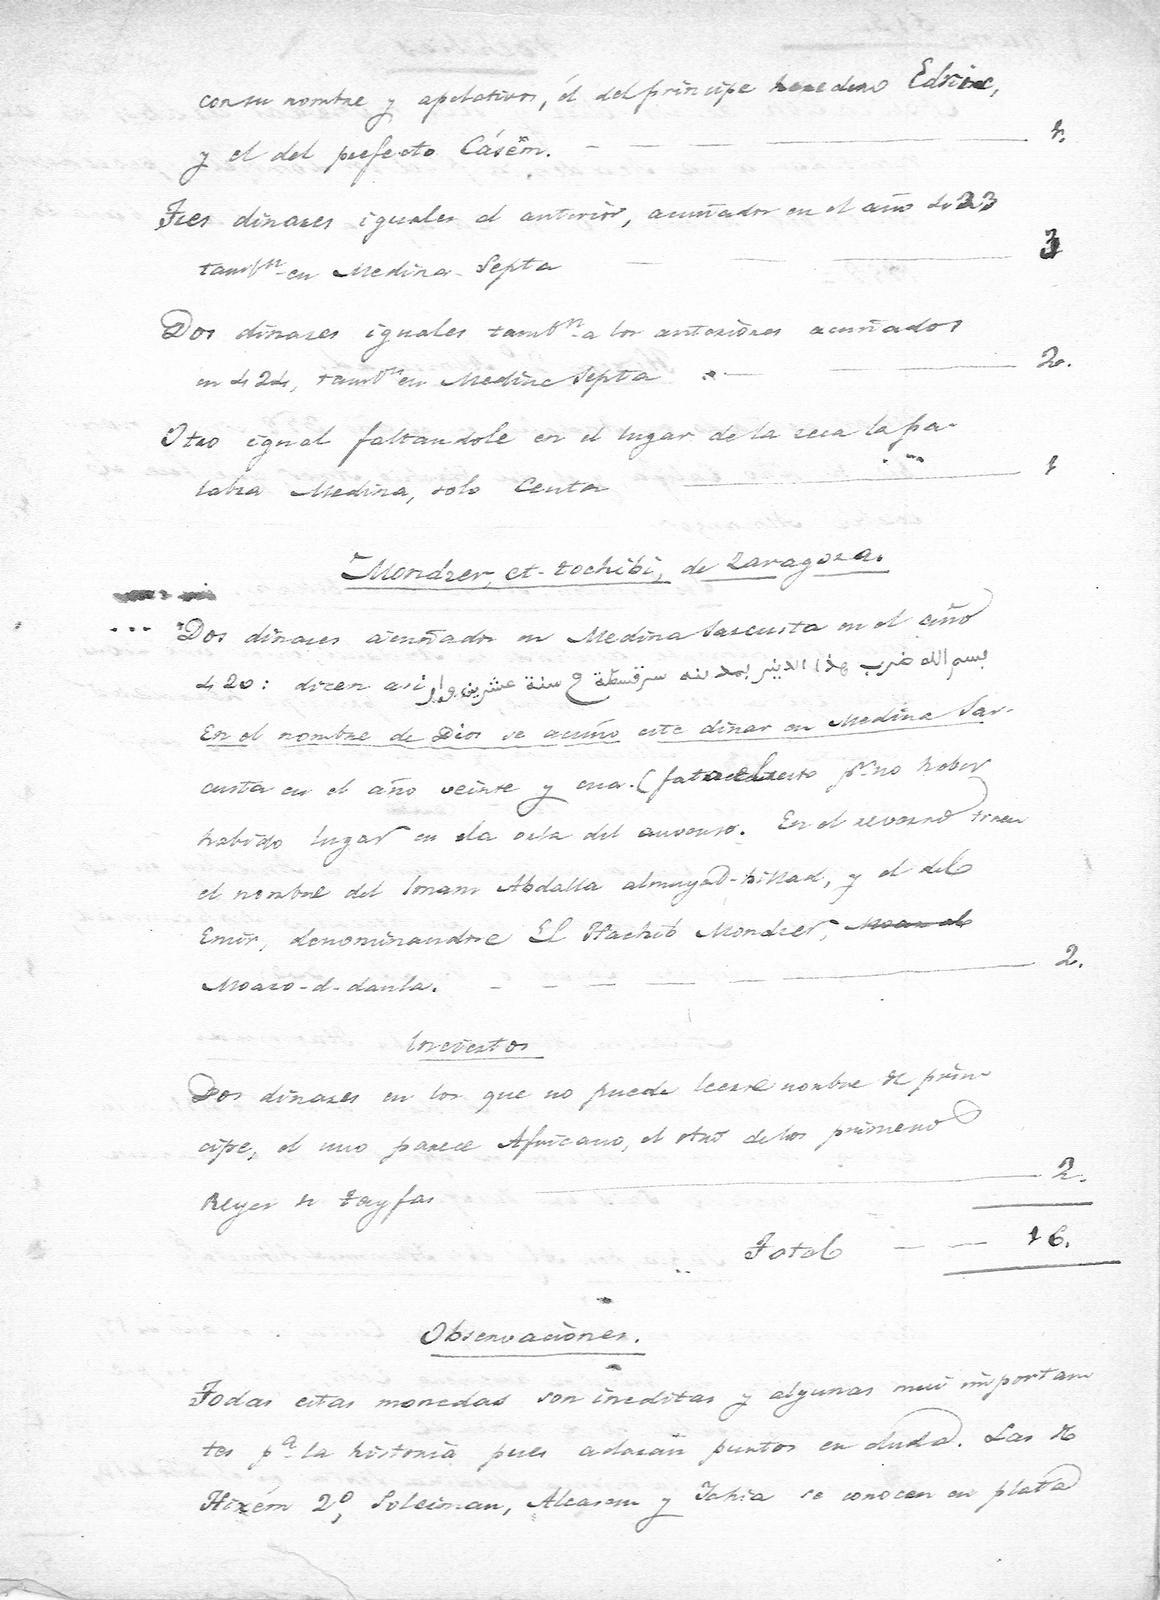 con su nombre y apelativos, él del principe heredero Edriz,
y el del prefecto Cásém. 1.
Tres dinares iguales al anterior, acuñados en el año 423
tambn en Medina Septa 3
Dos dinares iguales tambn a los anteriores acuñados
en 424, tambn en Medina Septa 2.
Otro igual faltandole en el lugar de la ceca la pa-
labra Medina, solo Ceuta 1
Mondzer, et-tochibi, de Zaragoza.
Dos dinares acuñados en Medina Sarcusta en el año
420: dicen asi بسم الله ضرب هذا الدينر بمدينه سرقسطة سنة عشرين وار
En el nombre de Dios se acuño este dinar en Medina Sar-
custa en el año veinte y cua. (falta el resto pr no haber
habido lugar en la orla del anverso. En el reverso tienen
el nombre del Imam Abdalla almuyad-billad, y el del
Emir, denominandose El Hachib Mondzer,
Moazo-d-daula. 2.
Inciertos
Dos dinares en los que no puede leerse nombre de prin-
cipe, el uno parece Africano, el otro de los primeros
Reyes de tayfas 2.
Total 16.
Observaciones.
Todas estas monedas son ineditas y algunas mui importan
tes pa la historia pues aclaran puntos en duda. Las de
Hixém 2º, Soleiman, Alcasem y Iahia se conocen en plata